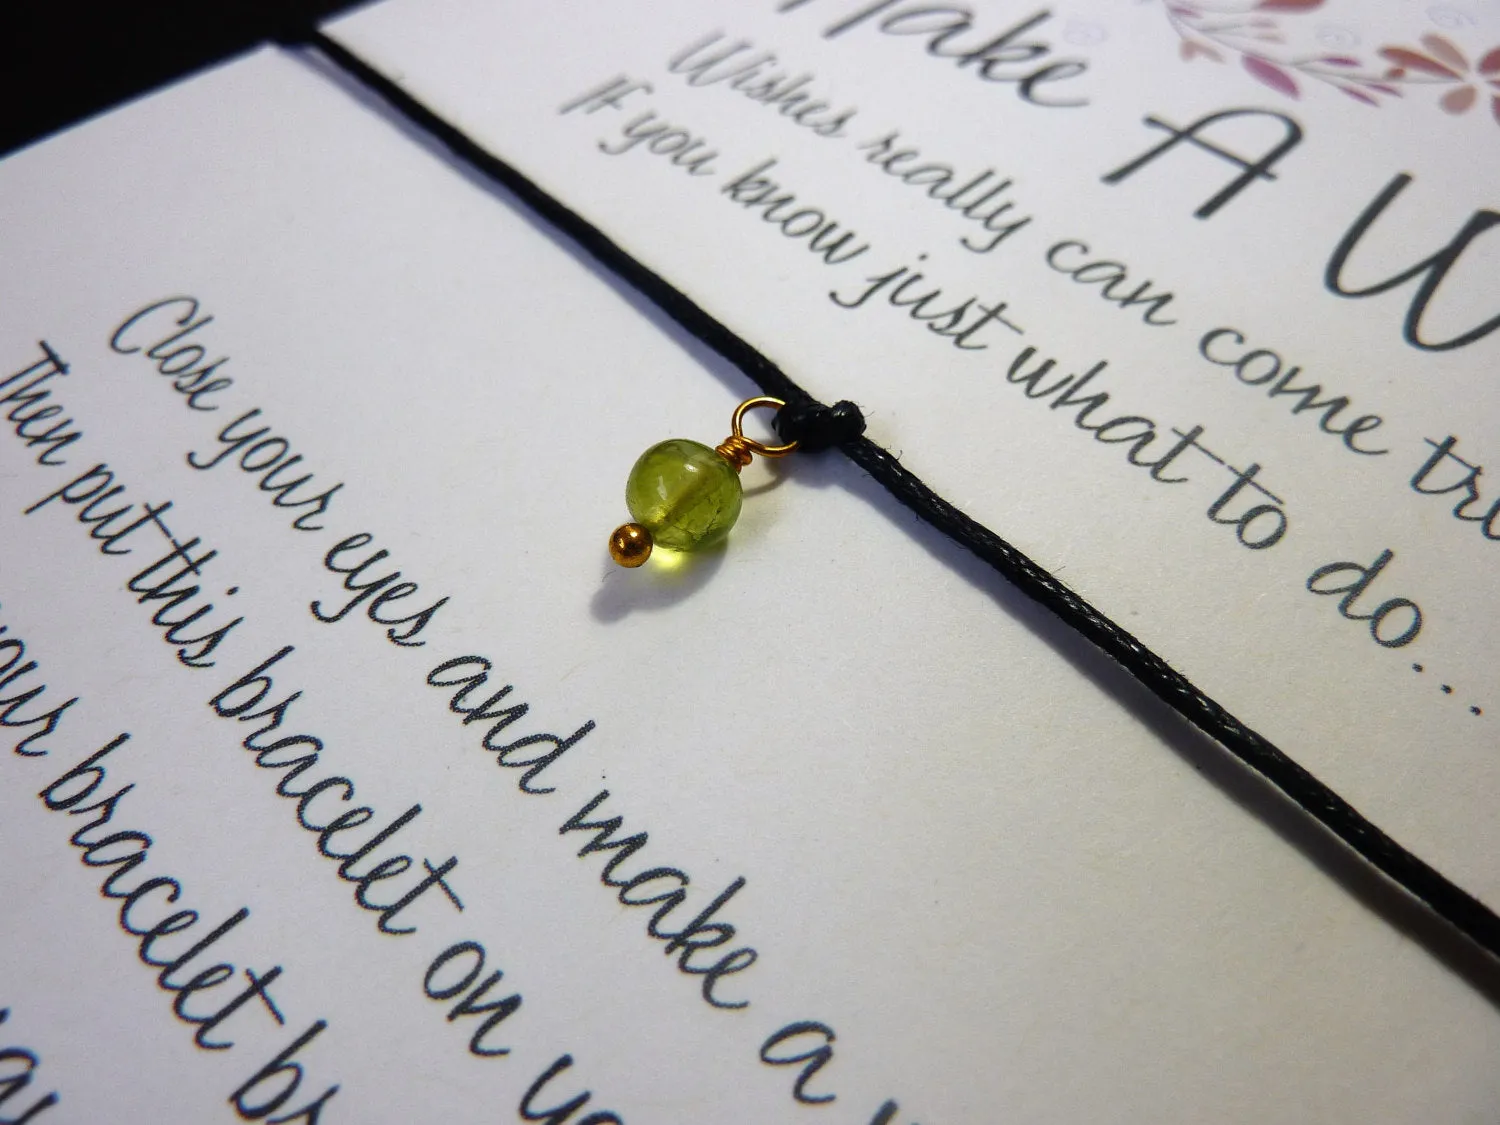 Make A W
Wishes really can come tru
If you know just what to do...
Close your eyes and make a
Then put this bracelet on yo
your bracelet br